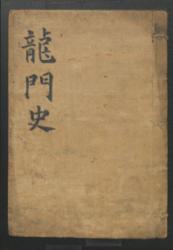 龍門史